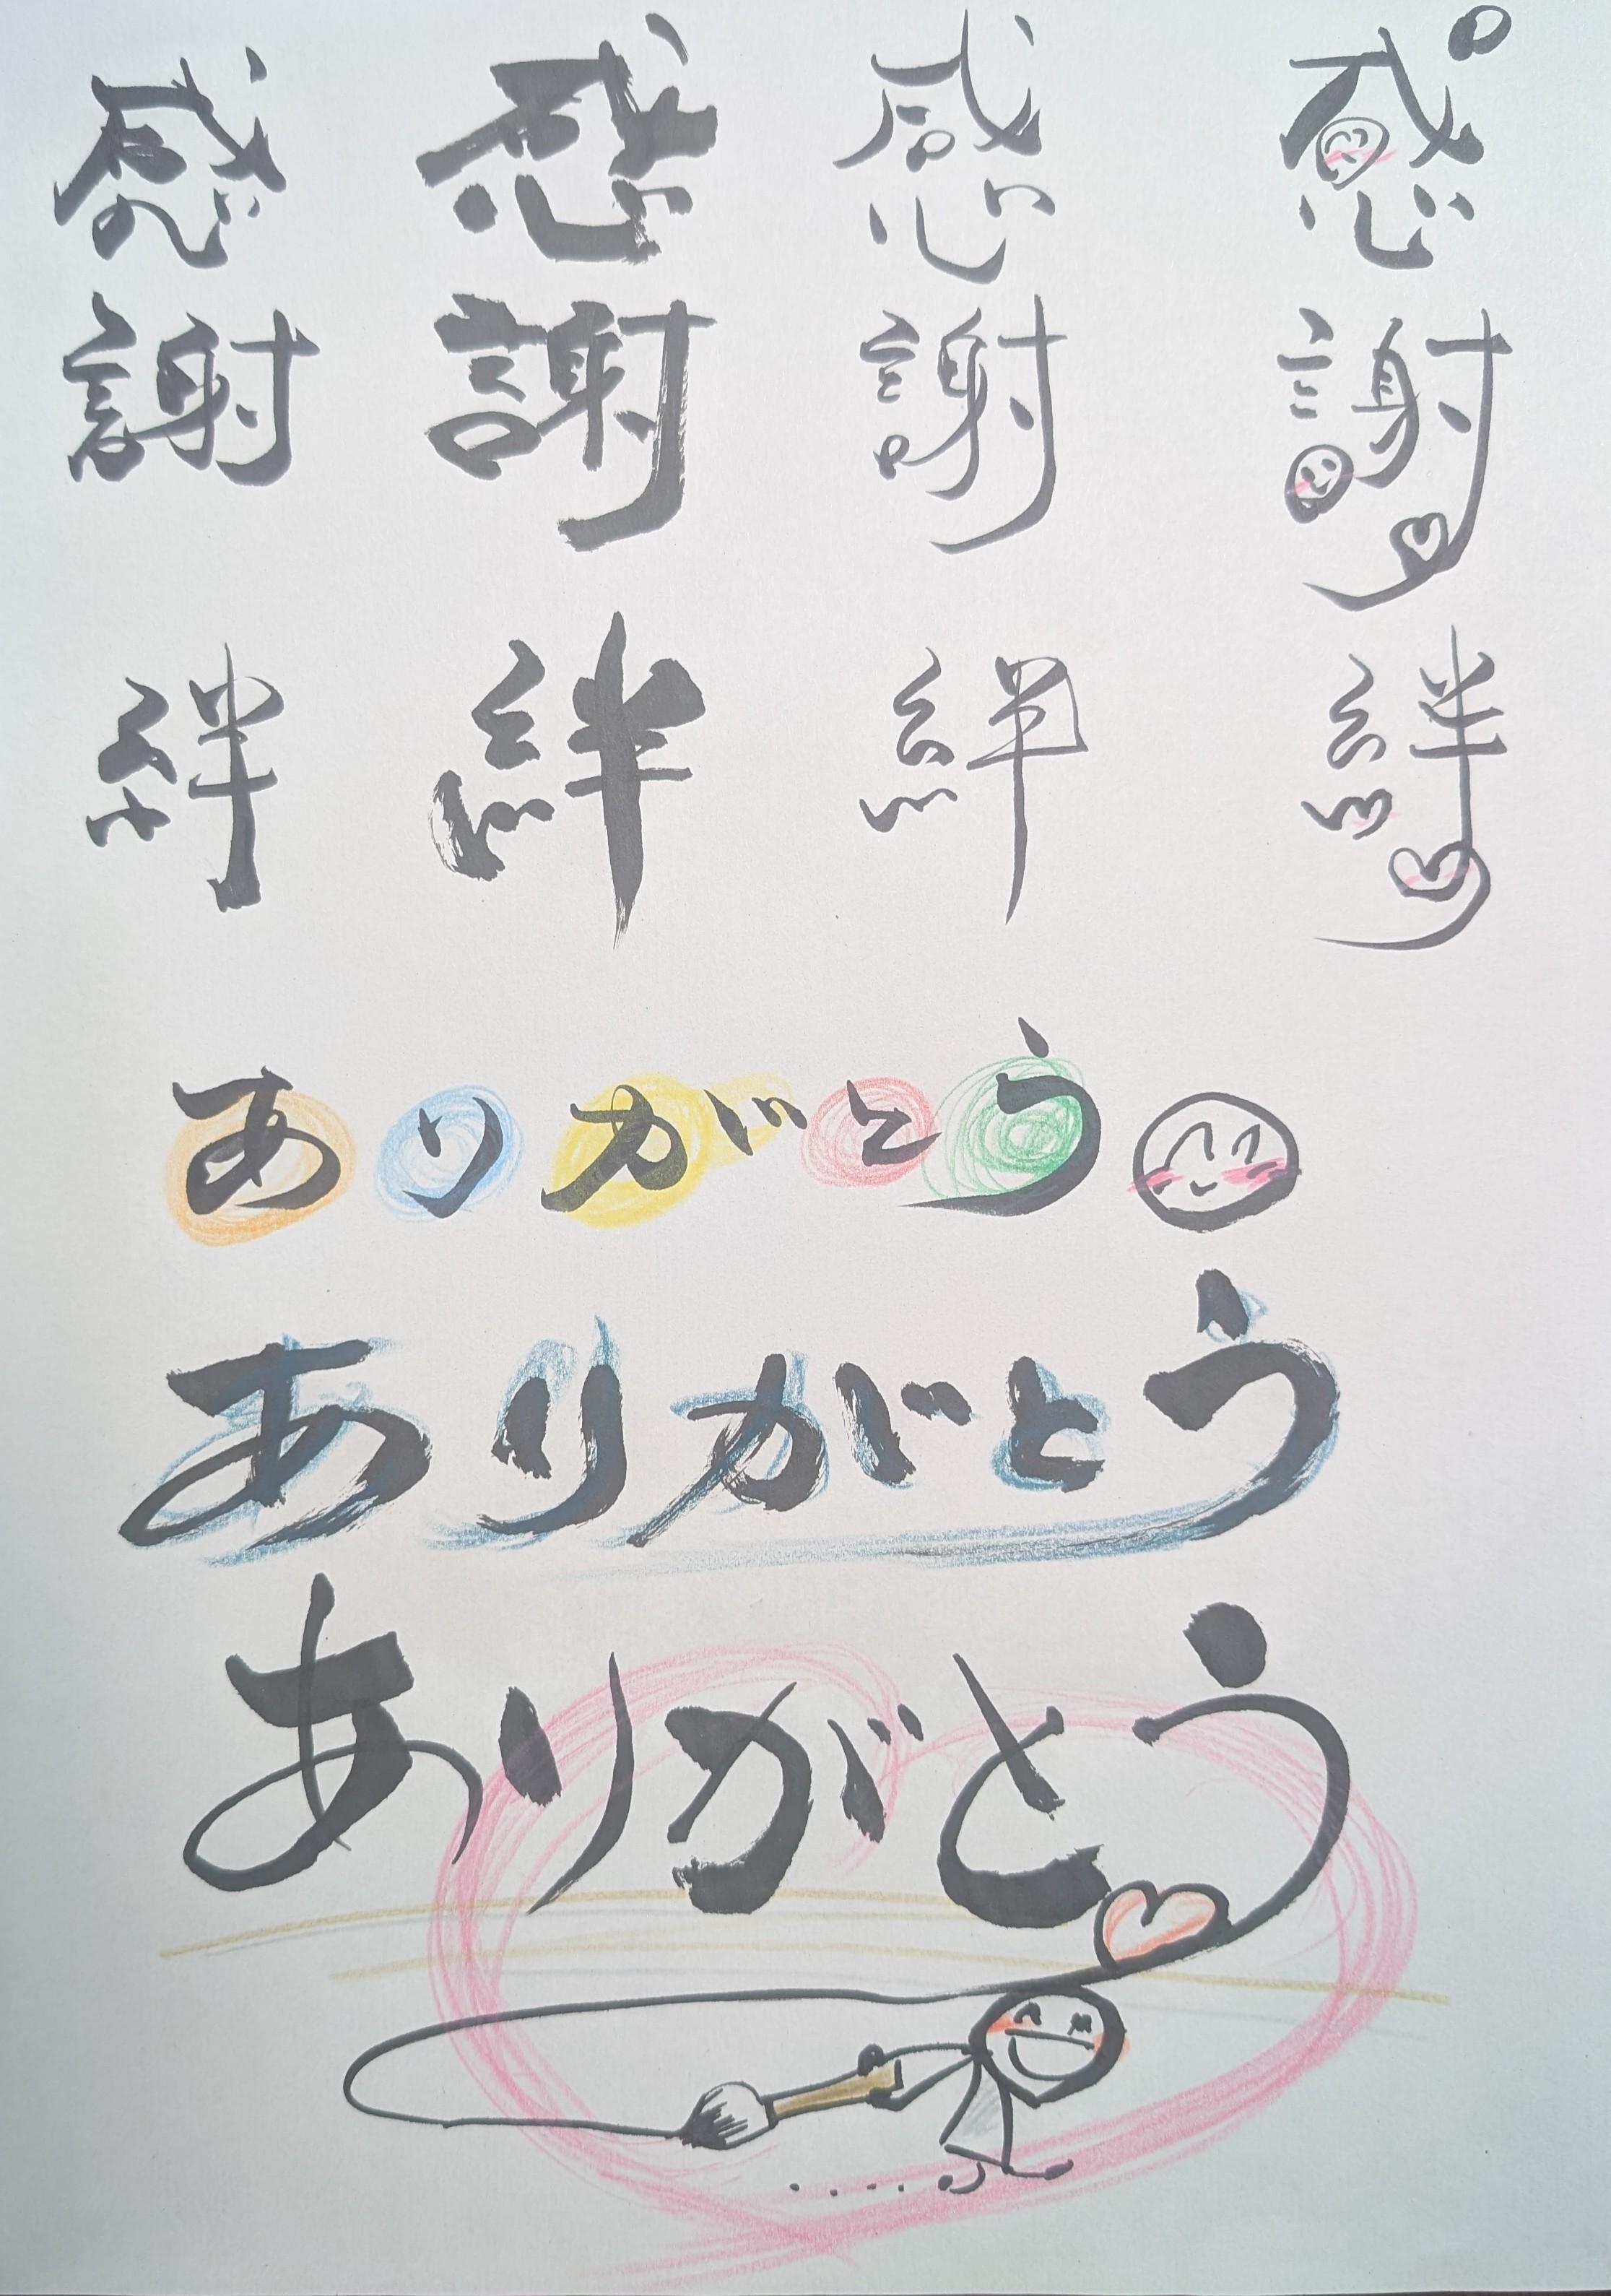 感 感 感 感
謝 謝 謝 謝
絆 絆 絆 絆
ありがとう
ありがとう
ありがとう